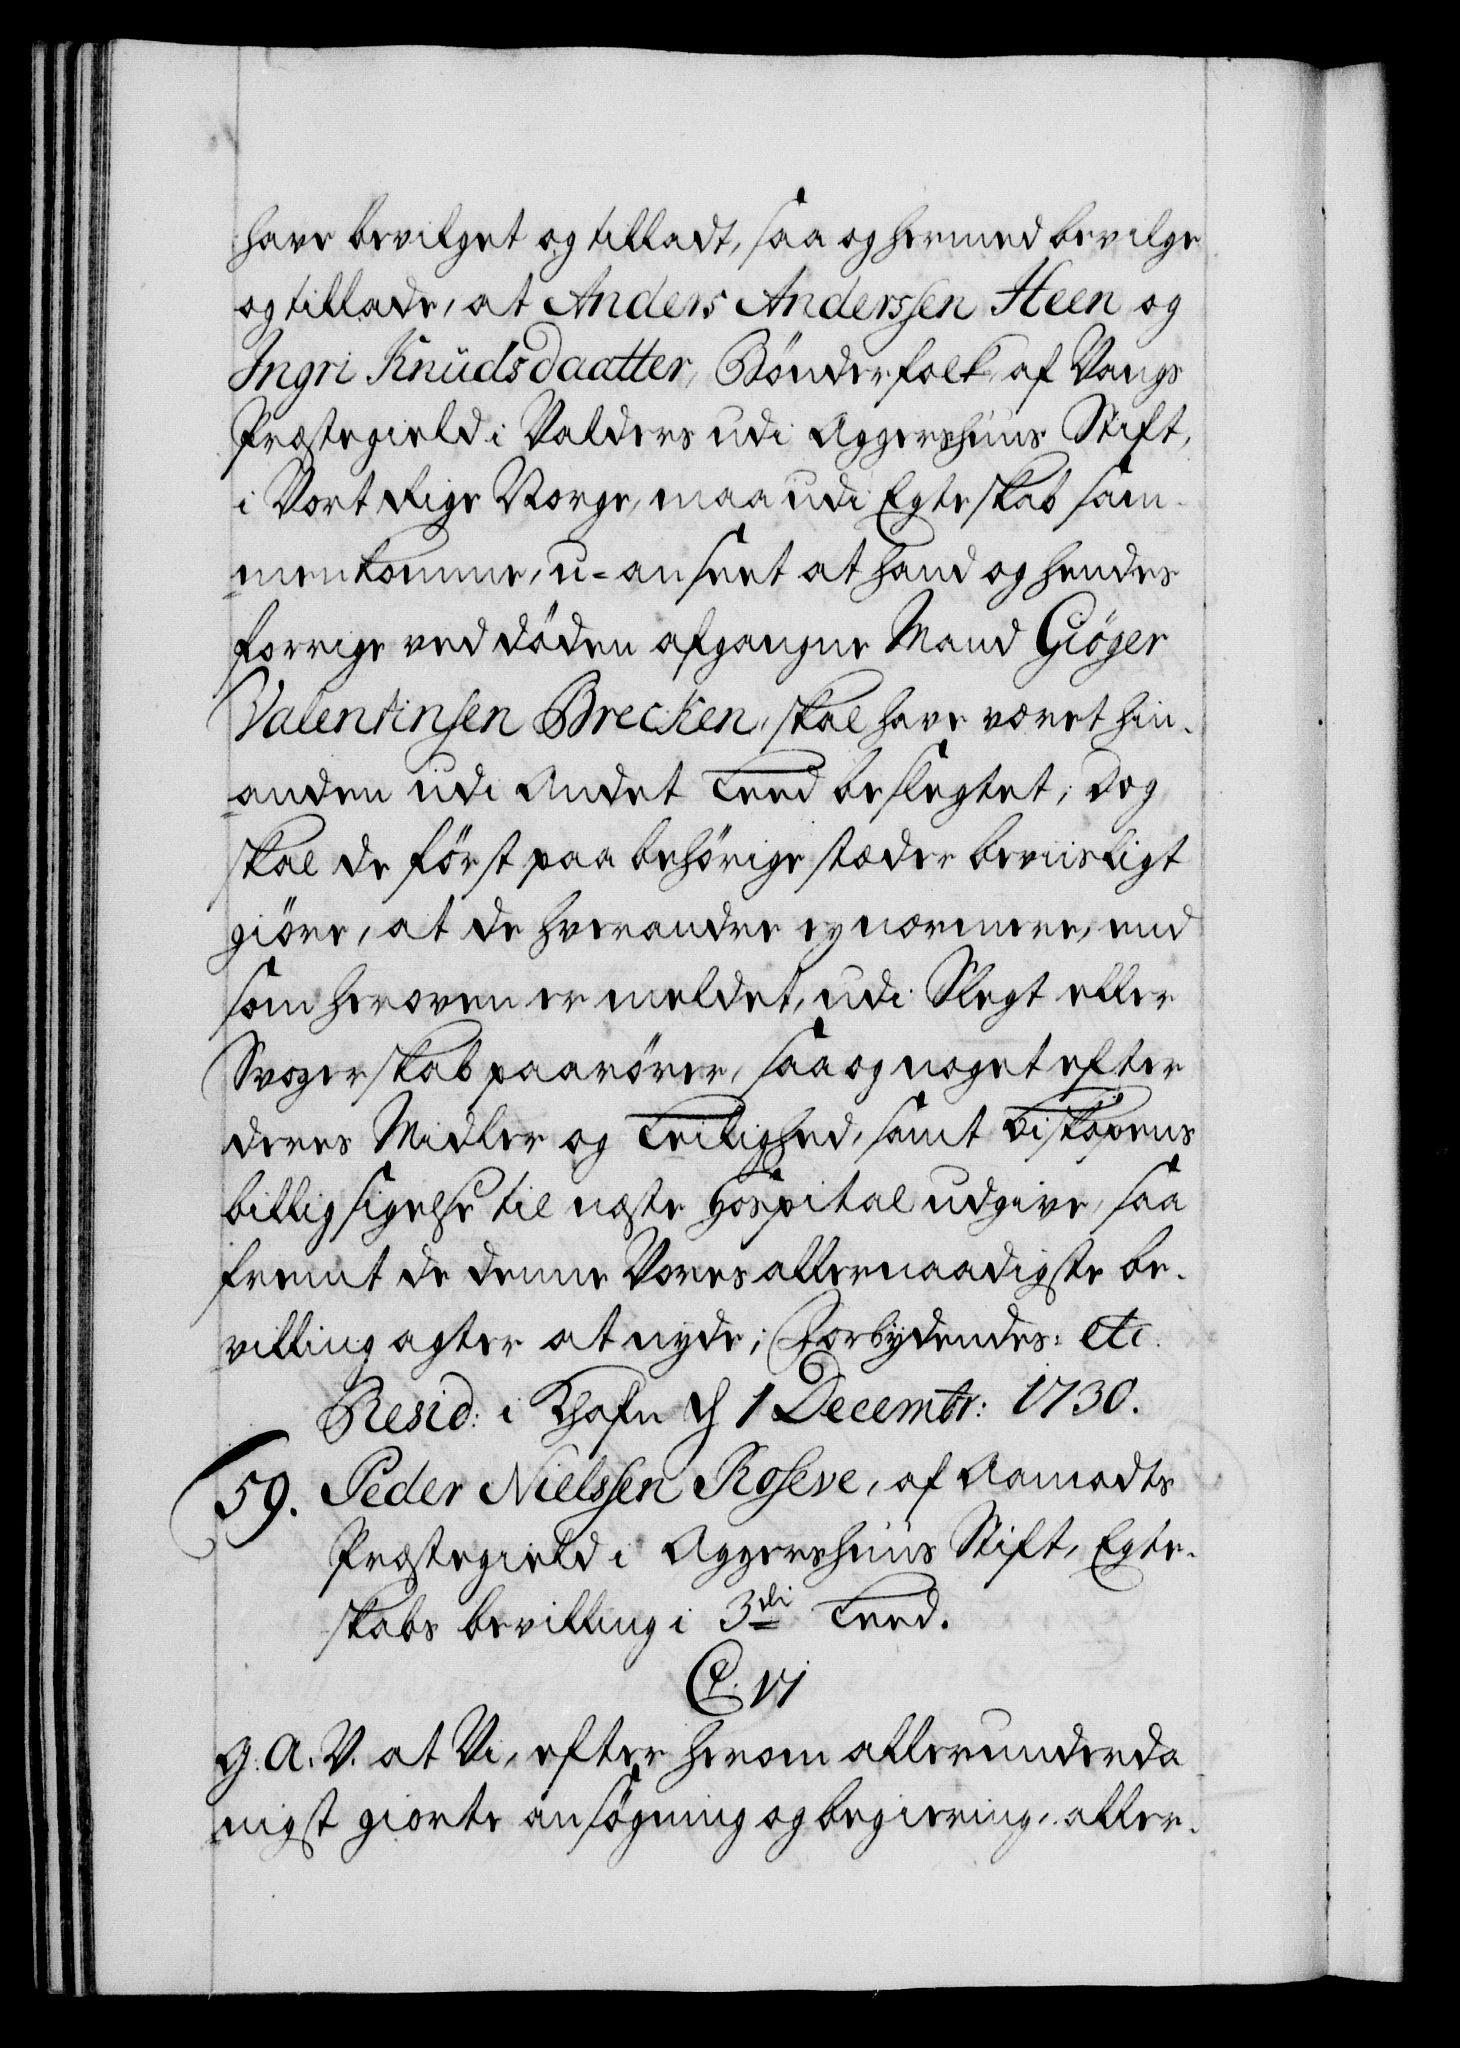 have bevilget og tilladt, saa og hermed bevilge
og tillade, at Anders Anderssen Heen og
Ingri Knüdsdaatter, Bönderfolk af Vangs
Præstegield i Valders udi Aggershuus Stift,
i Vort Rige Norge, maa udi Egteskab sam-
menkomme, u-anseet at hand og hendes
forrige ved döden afgangne Mand Giøger
Valentinsen Brecken, skal have været hin-
anden udi Andet Leed beslegtet; Dog
skal de först paa behörige stæder beviisligt
giöre, at de hverandre ey nærmere, end
som heroven er meldet, udi Slegt eller
Svogerskab paarörer, saa og noget efter
deres Midler og Leilighed, samt Biskopens
billig sigelse til næste Hospital udgive, saa
fremt de denne Vores allernaadigste be-
villing agter at nyde; Forbydendes: etc.
Resid: i Khafn d 1 Decembr: 1730.
59. Peder Nielssen Roseve, af Aamodts
Præstegield i Aggershuus Stift, Egte-
skabs bevilling i 3di Leed.
C. VI
G. A. V. at Vi, efter herom allerunderda
nigst giorte ansögning og begiering, aller-